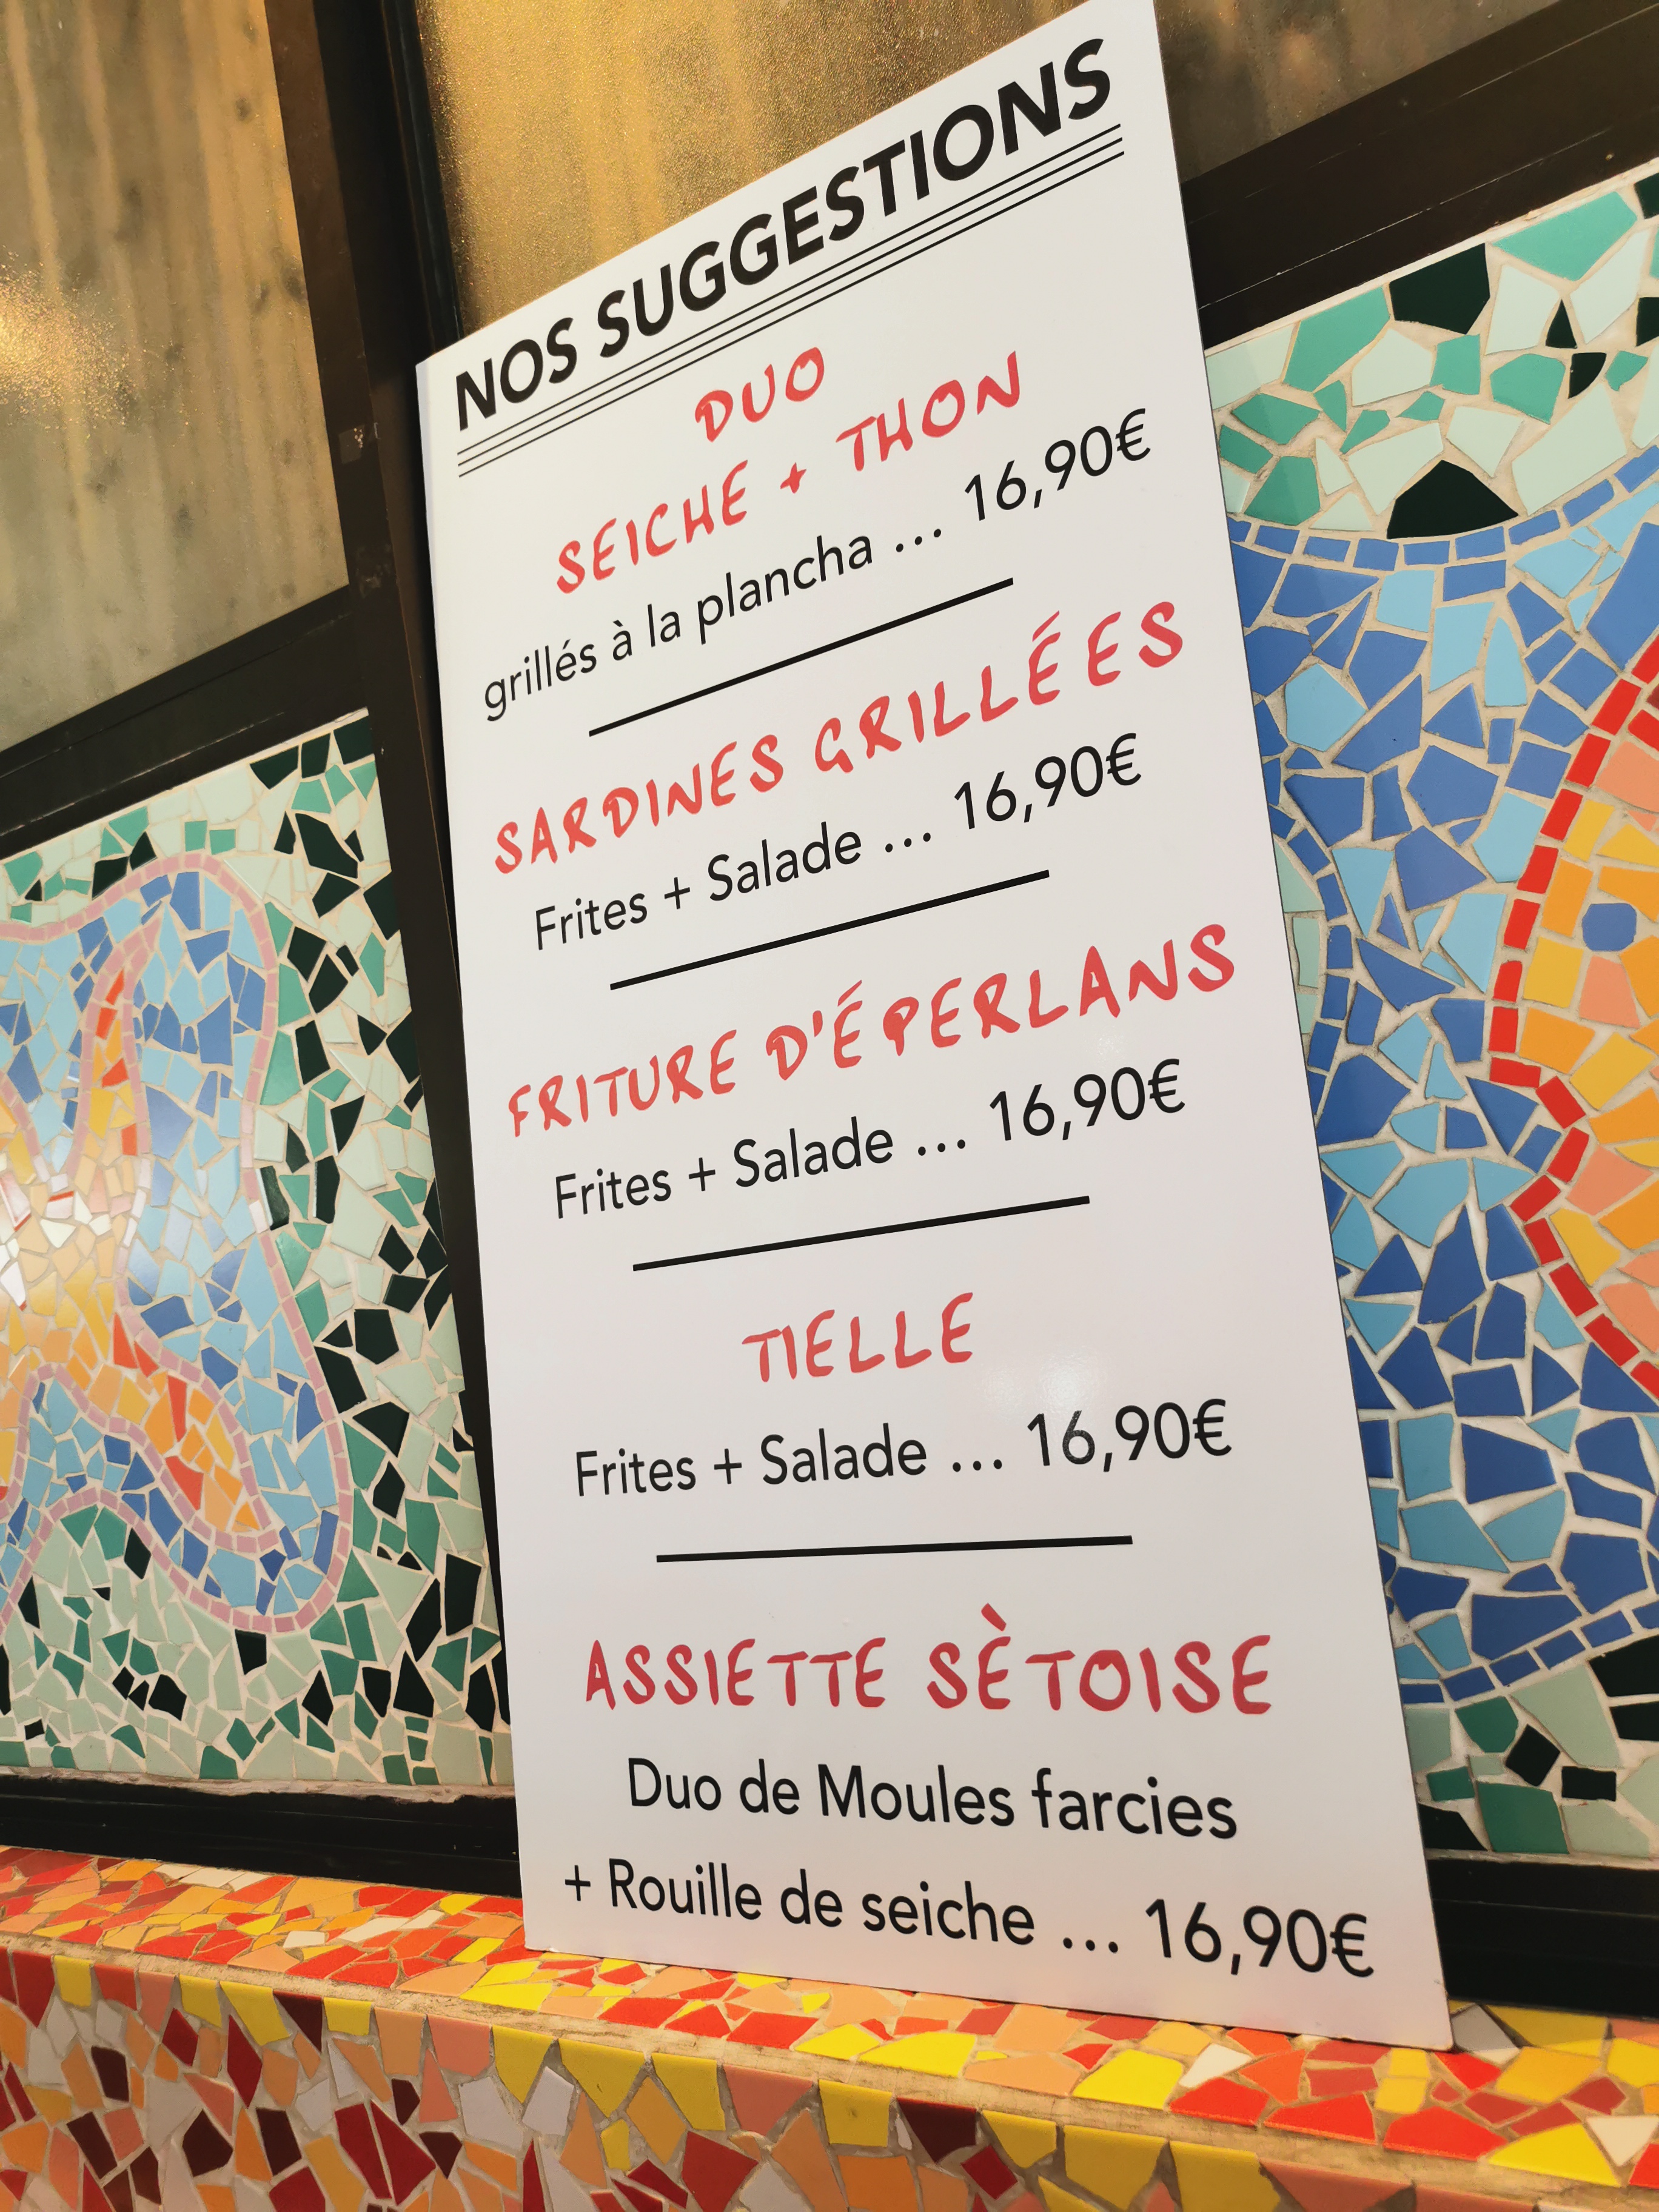 NOS SUGGESTIONS
DUO
SEICHE + THON
grillés à la plancha ... 16,90€
SARDINES GRILLÉES
Frites + Salade ... 16,90€
FRITURE D'ÉPERLANS
Frites + Salade ... 16,90€
TIELLE
Frites + Salade ... 16,90€
ASSIETTE SÈTOISE
Duo de Moules farcies
+ Rouille de seiche ... 16,90€